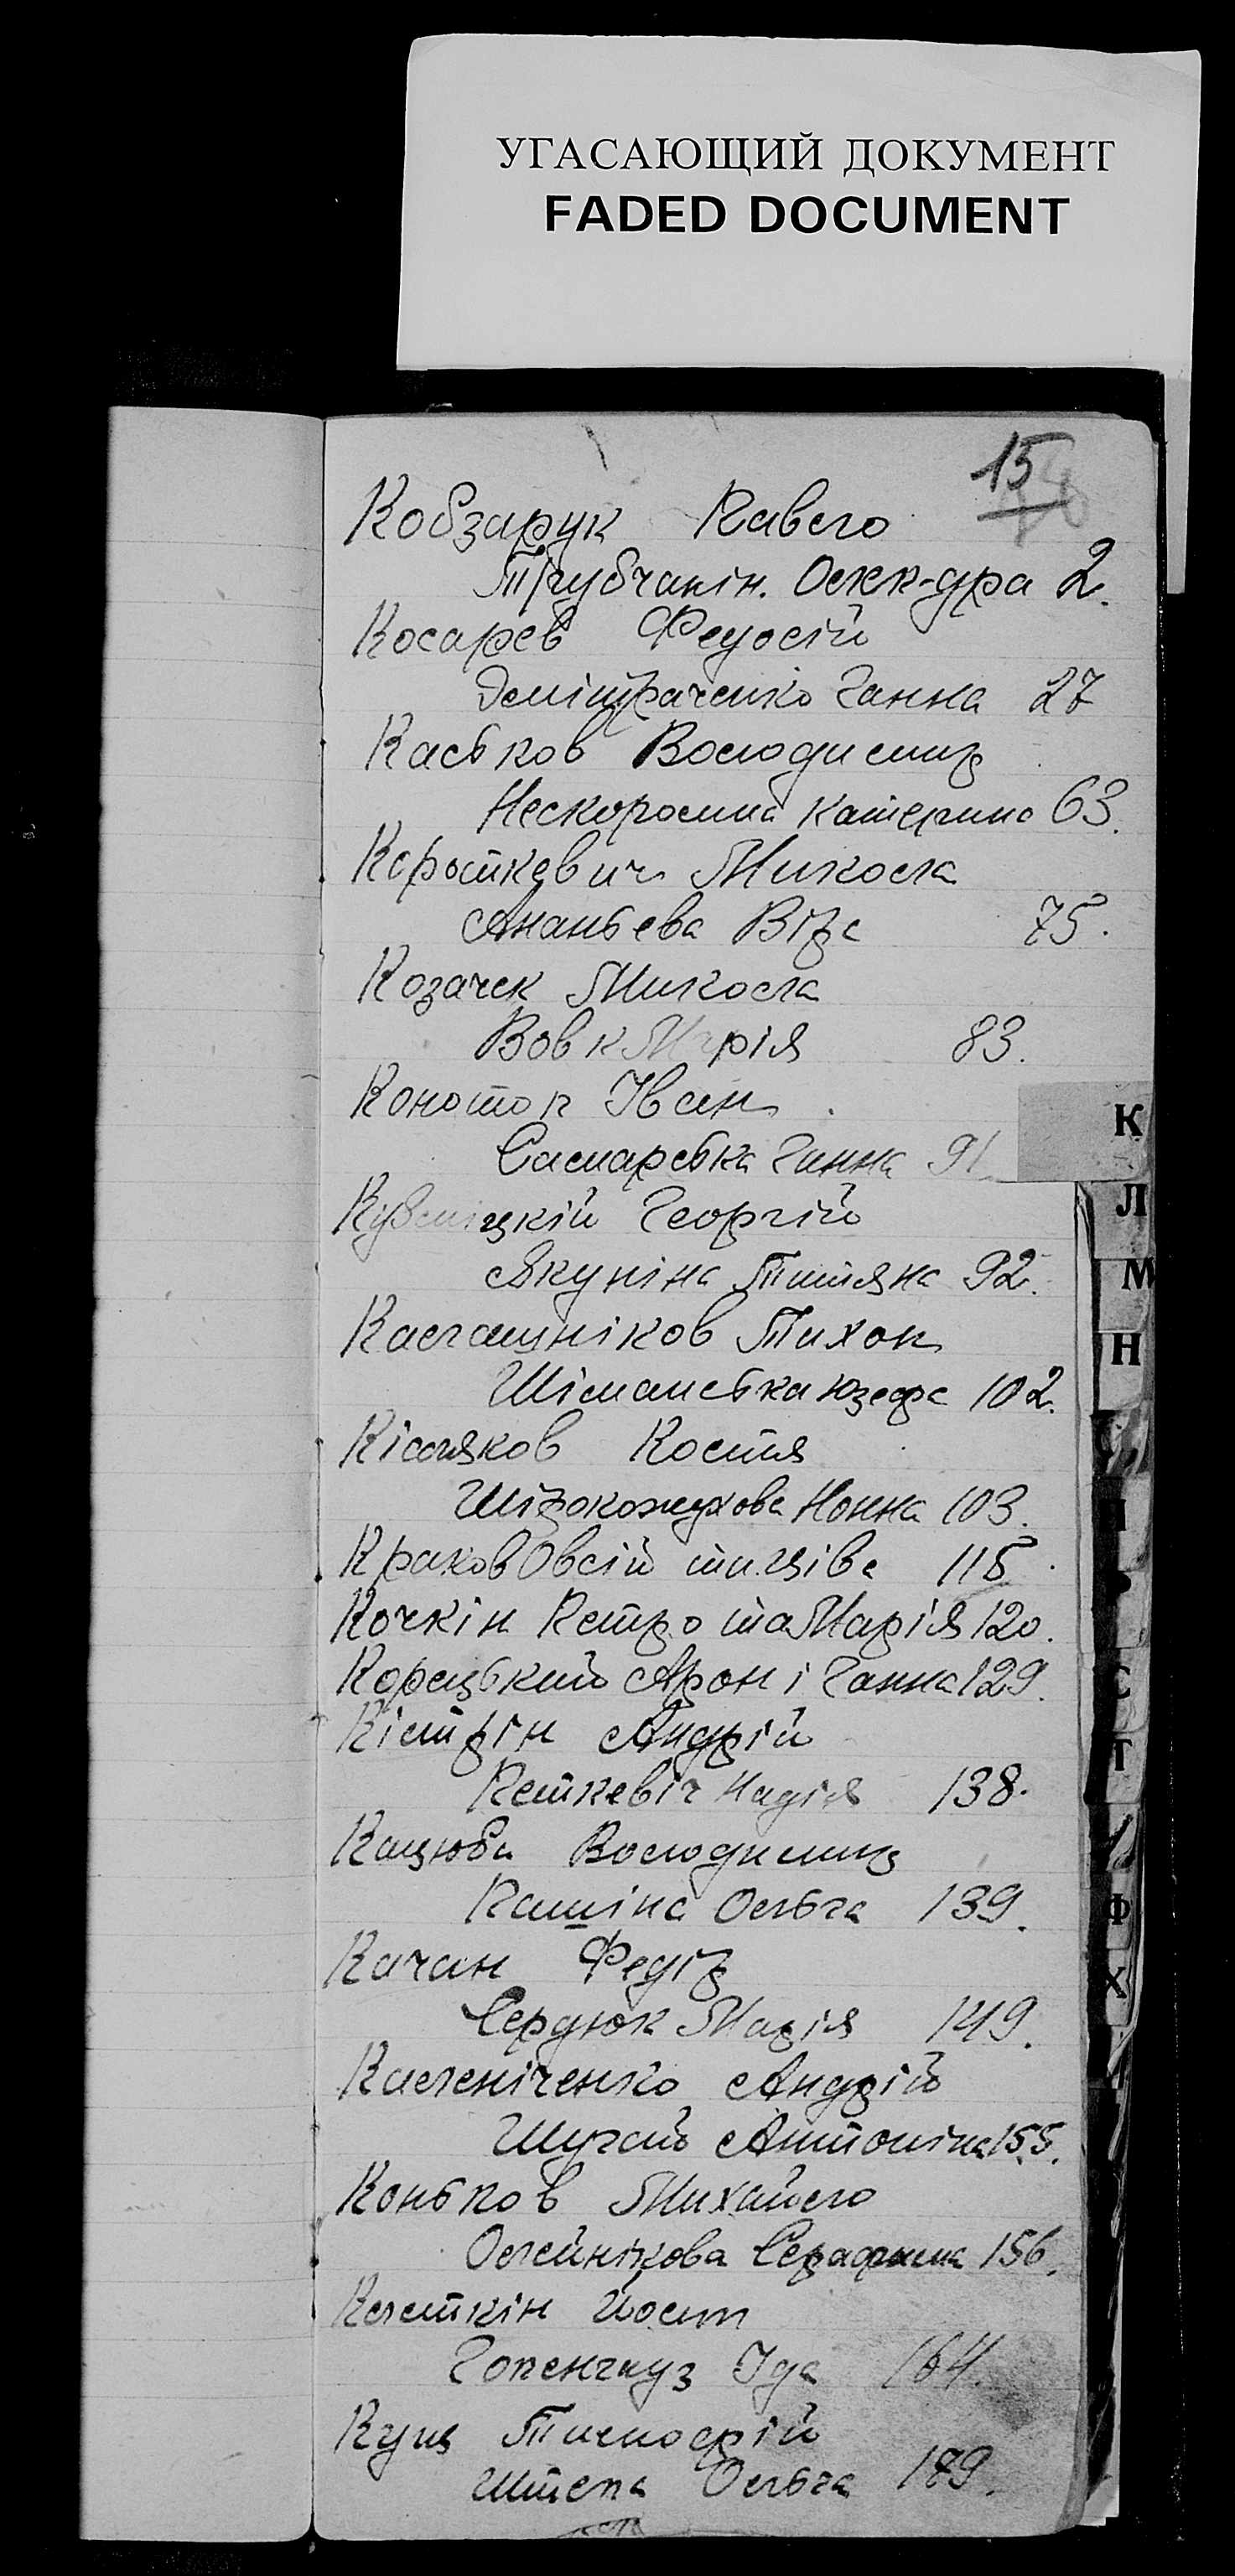 УГАСАЮЩИЙ ДОКУМЕНТ
FADED DOCUMENT
15
Кобзарук Павло
Трубчанін. Олек-дра 2.
Косарев Федосій
Демітраченко Ганна 27
Каськов Володимир
Нескоромна Катерина 63.
Короткевич Микола
Ананьева Віра 75.
Козачек Микола
Вовк Марія 83.
Конотоп Іван
Самарська Ганна 91
Георгій
Якуніна Тетяна 92.
Калашніков Тихон
Шіманська Юзефа 102.
Кісляков Костя
Шірокожухова Нонна 103.
Краков Овсій та Ціва 115
Кочкін Петро та Марія 120.
Корецький Арон і Ганна 129.
Кістрін Андрій
Петкевіч Надія 138.
Кацюба Володимир
Кашіна Ольга 139.
Качан Федір
Сердюк Марія 149.
Калєніченко Андрій
Шугай Антоніна 155.
Коньков Михайло
Олейнікова Серафима 156.
Клєткін Йосип
Гопенгауз Іда 164.
Кущ Тимофій
Штепа Ольга 179.
К
Л
М
Н
С
Т
Ф
Х